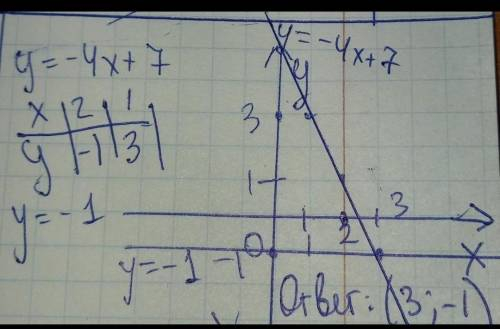 y=-4x+7
x | 2 | 1
y | -1 | 3
y=-1
y=-4x+7
y
3
1
0
1
2
3
x
y=-1 -1
Ответ: (3;-1)